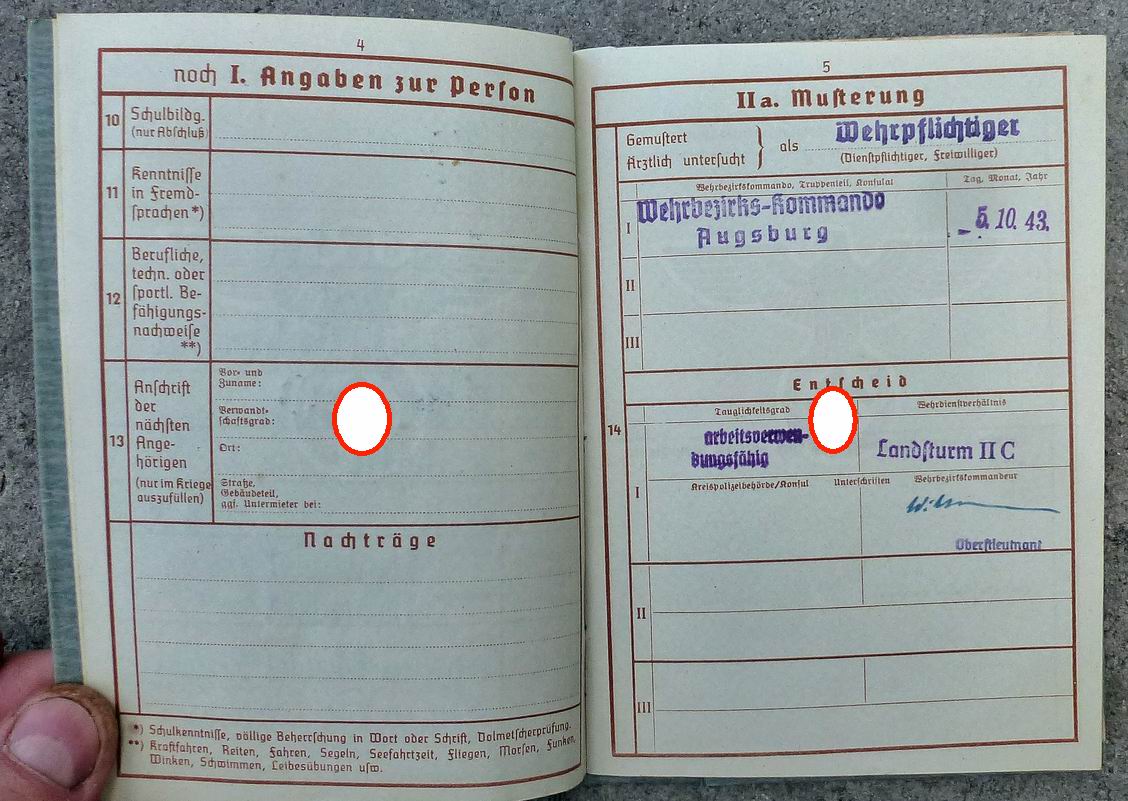 4
noch I. Angaben zur Perſon
10
Schulbildg.
(nur Abſchluß)
11
Kenntniſſe
in Fremd-
ſprachen*)
12
Berufliche,
techn. oder
ſportl. Be-
fähigungs-
nachweiſe
**)
13
Anſchrift
der
nächſten
Ange-
hörigen
(nur im Kriege
auszufüllen)
Vor- und
Zuname:
Verwandt-
ſchaftsgrad:
Ort:
Straße,
Gebäudeteil,
ggf. Untermieter bei:
Nachträge
*) Schulkenntniſſe, völlige Beherrſchung in Wort oder Schrift, Dolmetſcherprüfung.
**) Kraftfahren, Reiten, Fahren, Segeln, Seefahrtzeit, Fliegen, Morſen, Funken,
Winken, Schwimmen, Leibesübungen uſw.
5
IIa. Muſterung
Gemuſtert
Ärztlich unterſucht } als Wehrpflichtiger
(Dienſtpflichtiger, Freiwilliger)
Wehrbezirkskommando, Truppenteil, Konſulat
Tag, Monat, Jahr
I
Wehrbezirks-Kommando
Augsburg
- 5. 10. 43.
II
III
Entſcheid
14
Tauglichkeitsgrad
Wehrdienſtverhältnis
I
arbeitsverwen-
dungsfähig
Landſturm II C
Kreispolizeibehörde/Konſul
Unterſchriften
Wehrbezirkskommandeur
Oberſtleutnant
II
III